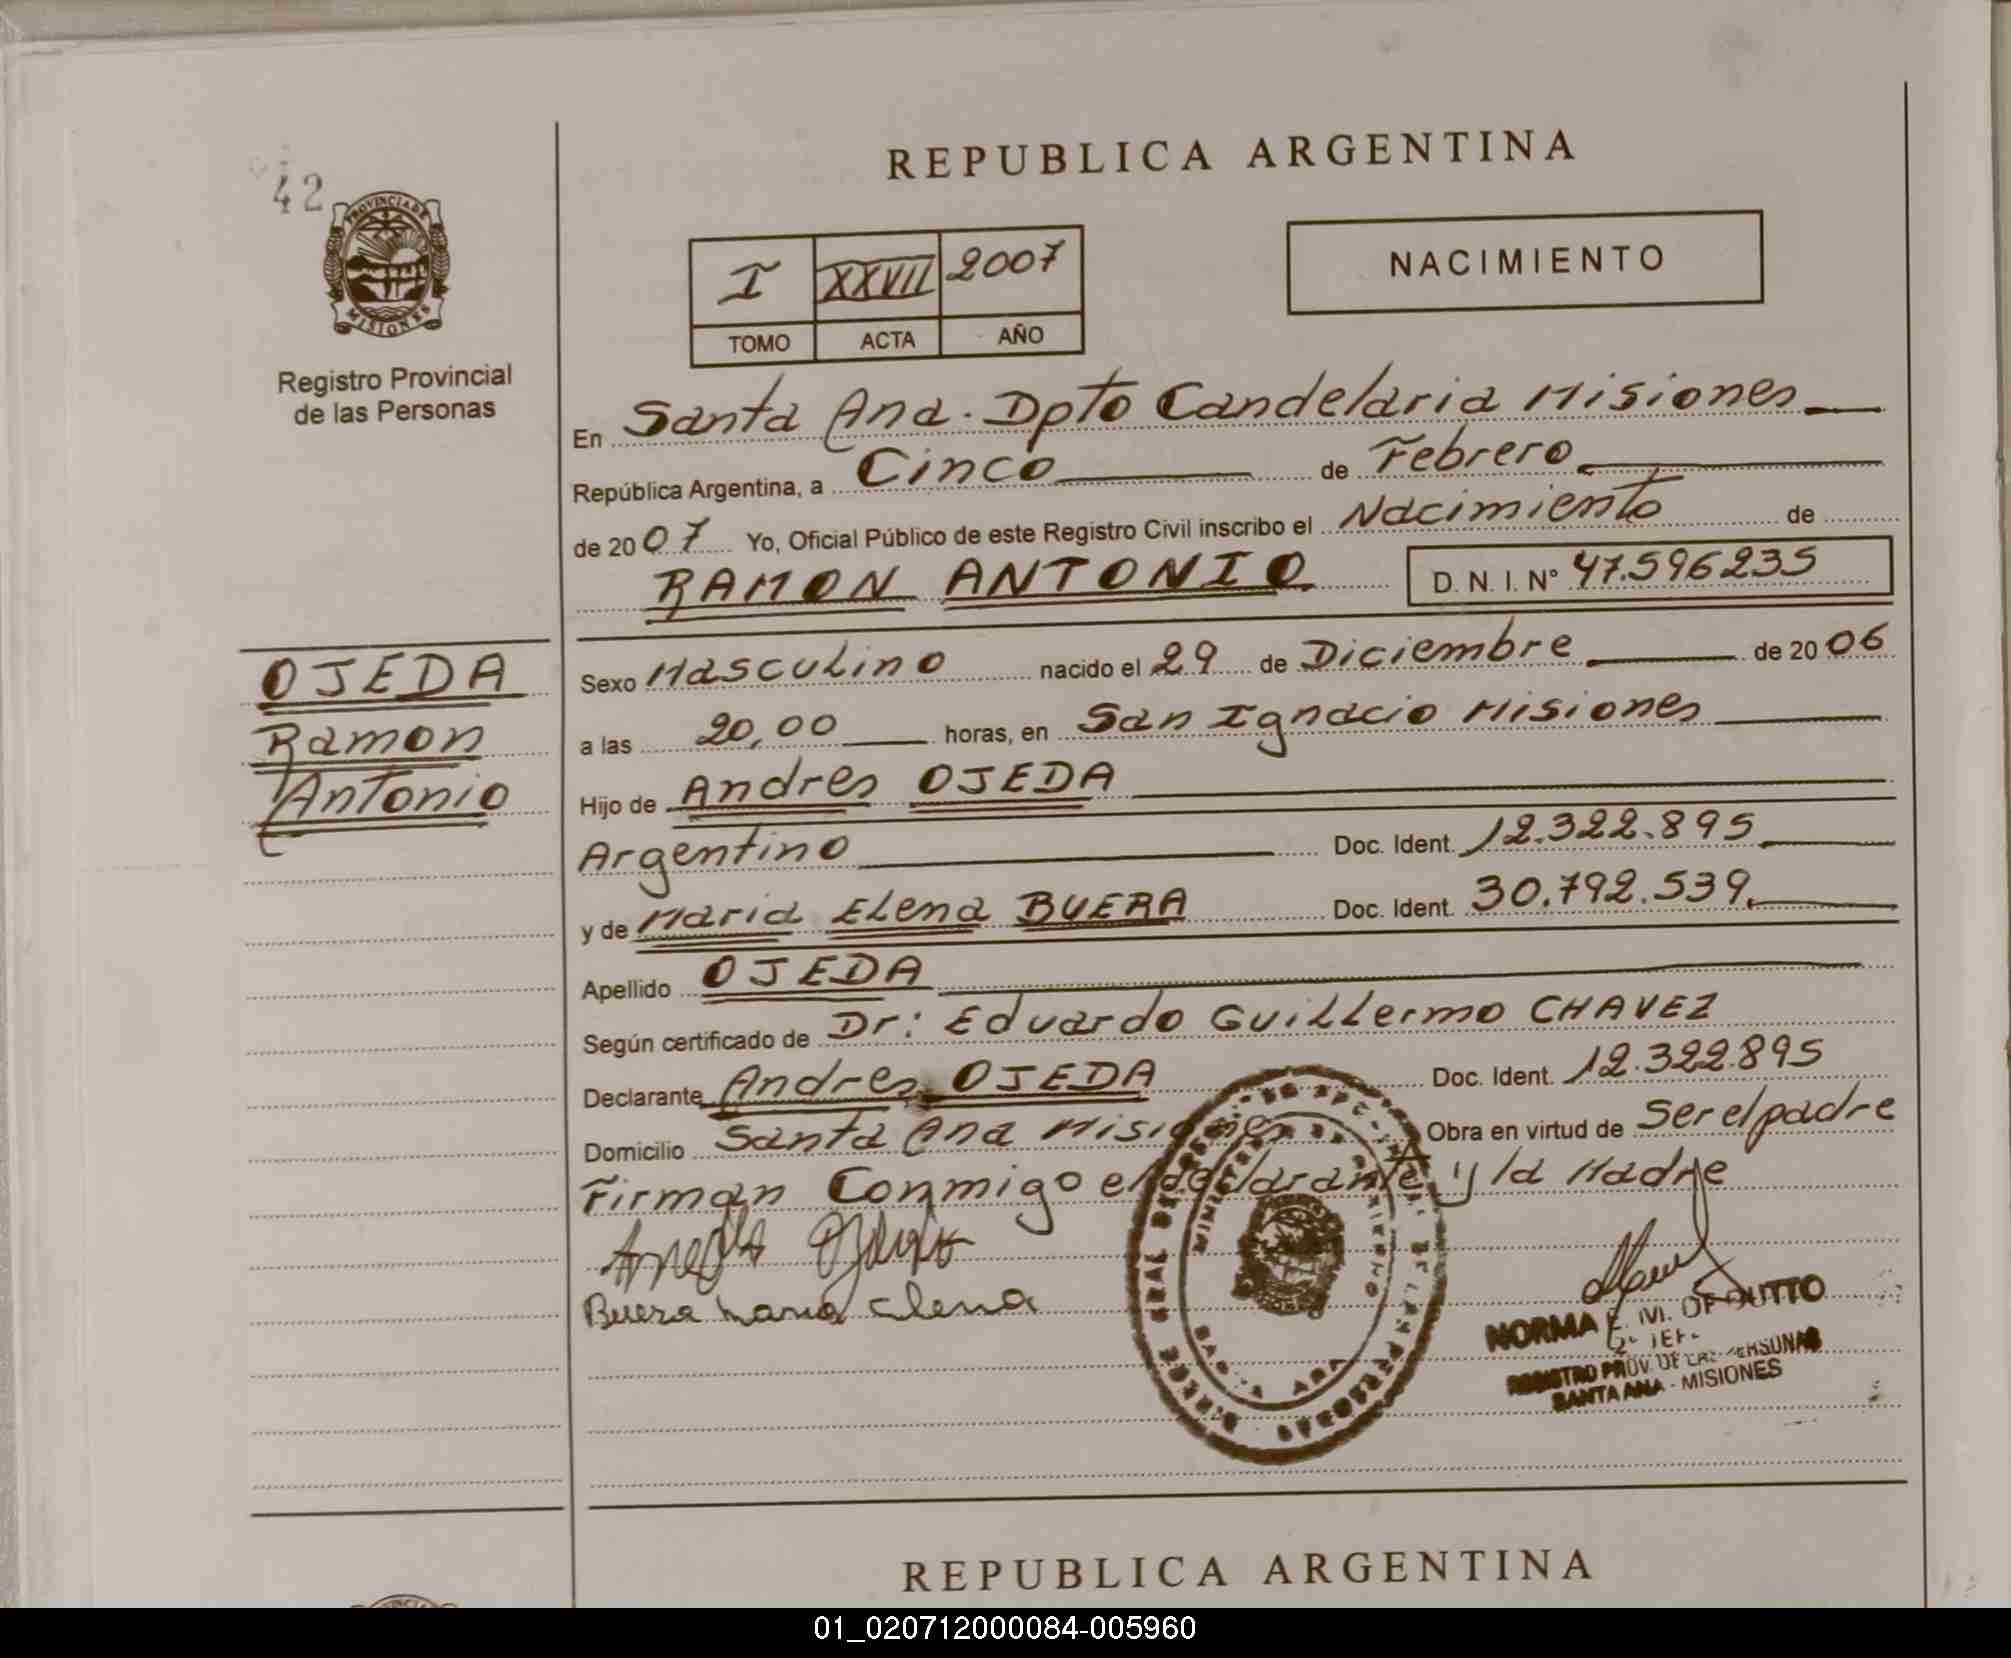 42
PROVINCIA DE
MISIONES
Registro Provincial
de las Personas
REPUBLICA ARGENTINA
I XXVII 2007
TOMO ACTA AÑO
NACIMIENTO
En Santa Ana. Dpto Candelaria Misiones
República Argentina, a Cinco de Febrero
de 2007 Yo, Oficial Público de este Registro Civil inscribo el Nacimiento de
RAMON ANTONIO D. N. I. N° 47.596235
OJEDA
Ramon
Antonio
Sexo Masculino nacido el 29 de Diciembre de 2006
a las 20,00 horas, en San Ignacio Misiones
Hijo de Andres OJEDA
Argentino Doc. Ident. 12.322.895
y de Maria Elena BUERA Doc. Ident. 30.792.539
Apellido OJEDA
Según certificado de Dr: Eduardo Guillermo CHAVEZ
Declarante Andres OJEDA Doc. Ident. 12.322.895
Domicilio Santa Ana Misiones Obra en virtud de Ser el padre
Firman Conmigo el declarante y la Madre
Buera Maria Elena
NORMA E. M. DE DUTTO
REGISTRO PROV. DE LAS PERSONAS
SANTA ANA - MISIONES
REPUBLICA ARGENTINA
01_020712000084-005960